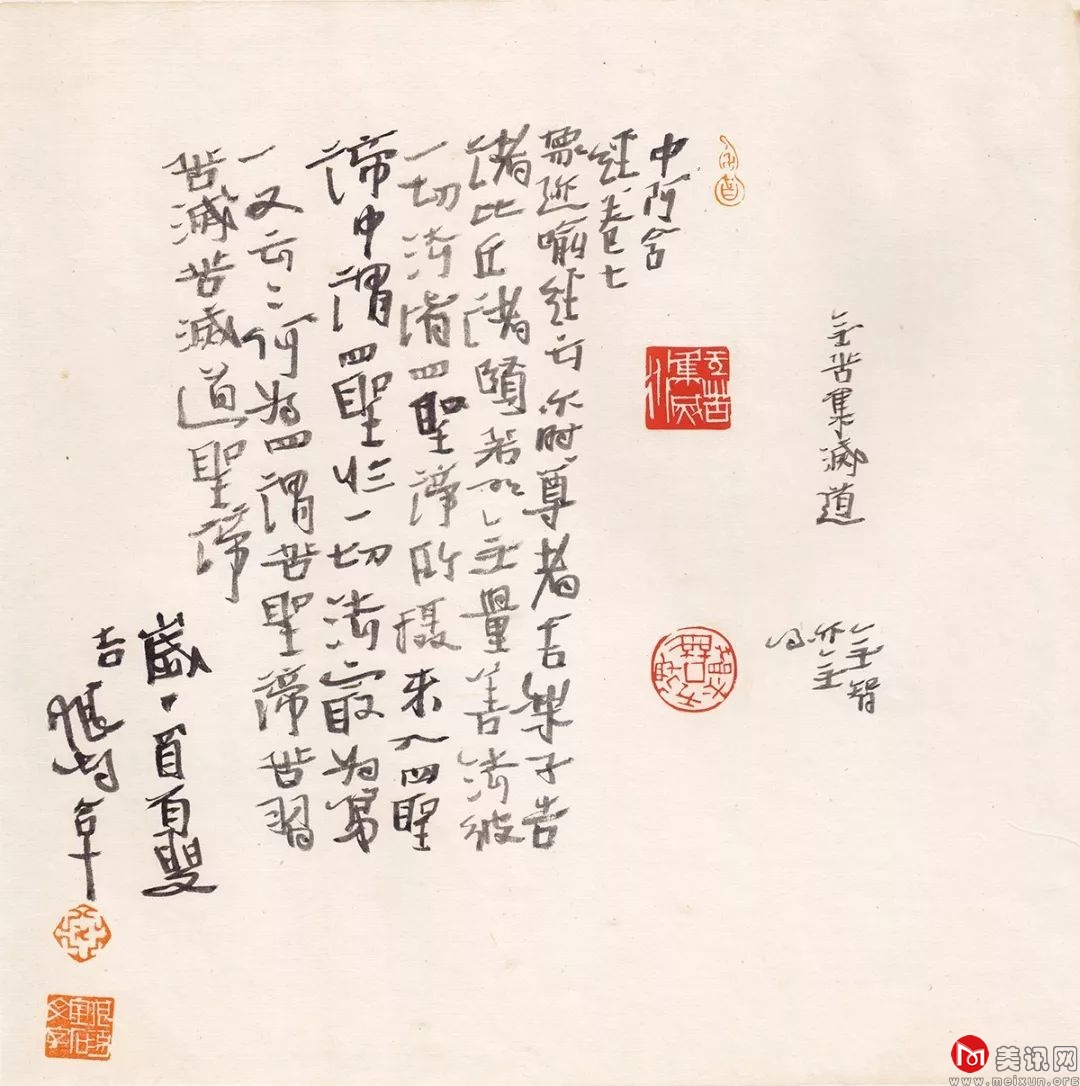 無苦集滅道
無智
亦無
得
中阿含
經卷七
象迹喻經云尒時尊者舍棃子告
諸比丘諸賢若有無量善法彼
一切法皆四聖諦所攝来入四聖
諦中謂四聖於一切法最为第
一又云云何为四謂苦聖諦苦習
苦滅苦滅道聖諦
吉
無苦集滅道
美讯网
www.meixun.org